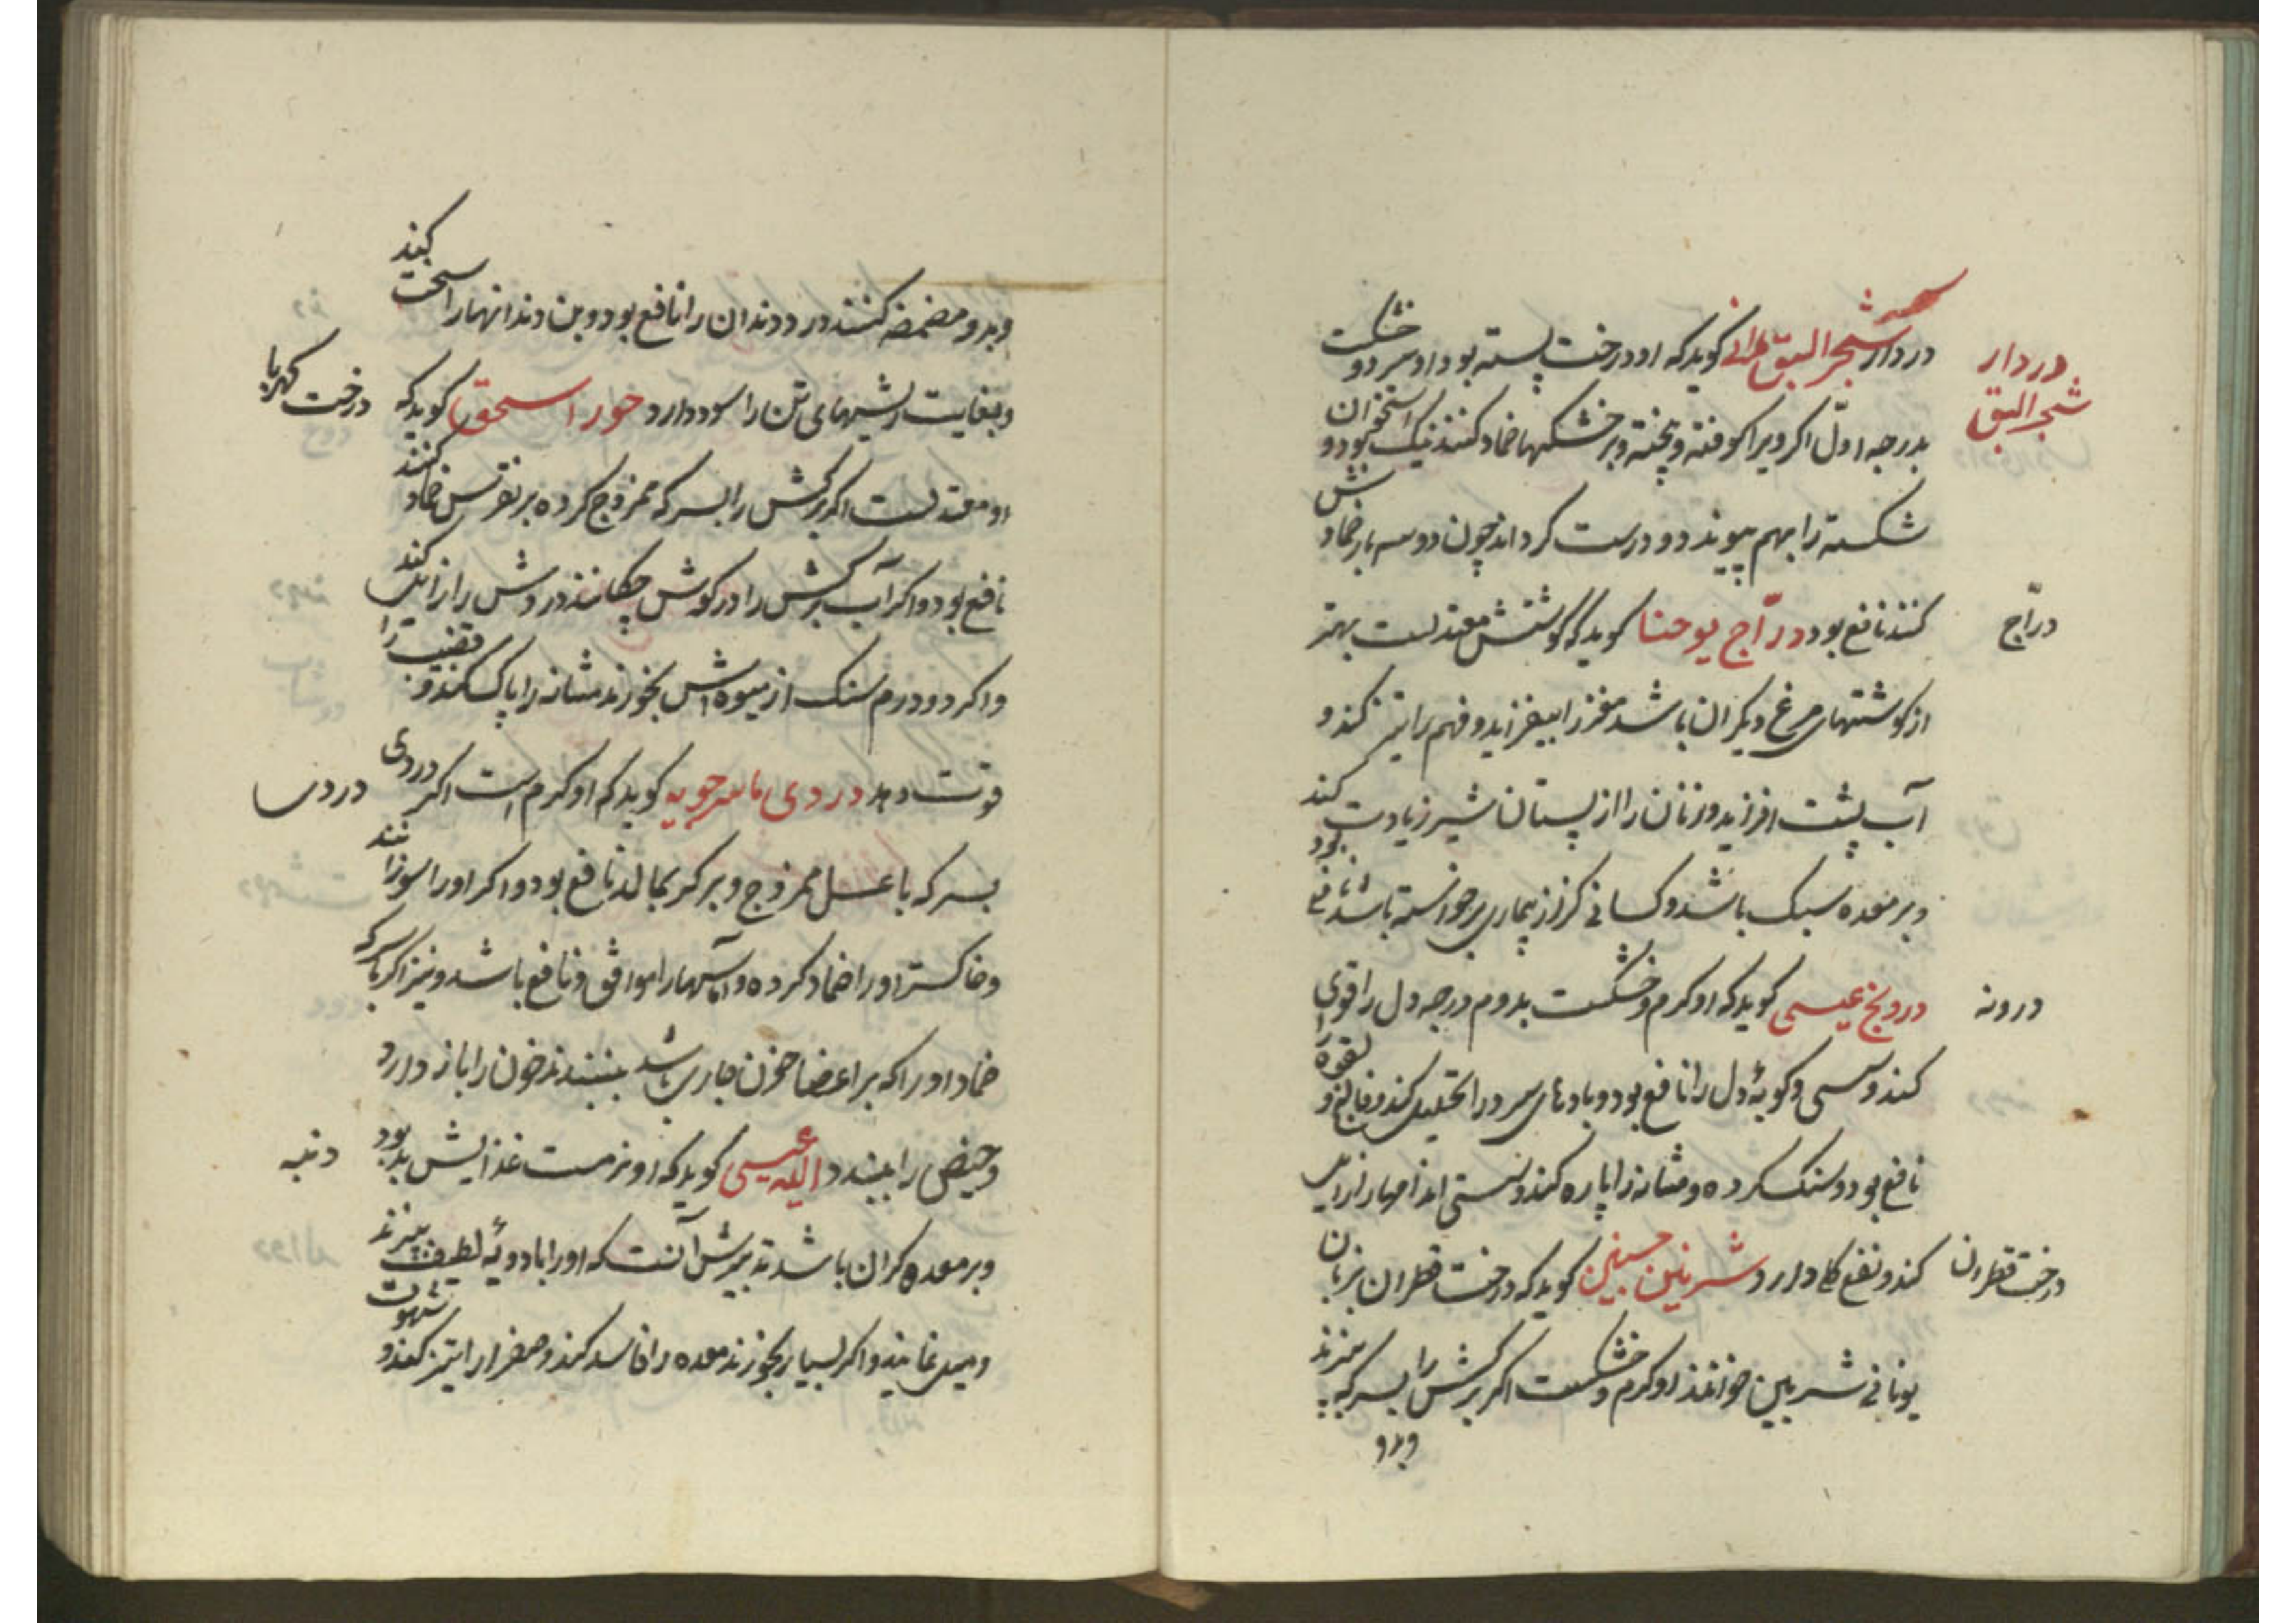 دردار شجر البق
دردار شجر البق طبرانی کوید که او درخت پسته بود او سرد و خشکست
بدرجه اوّل اکر ویرا کوفته و پخته و بر خشکیها ضماد کنند نیک بود و استخوان
شکسته را بهم پیوندد و درست کرداند چون دو سه بار ضمادش
درّاج
کنند نافع بود درّاج یوحنا کوید که کوشتش معتدلست بهتر
از کوشتهای مرغ دیکران باشد مغز را بیفزاید و فهم را تیز کند و
آب پشت افزاید و زنان را از پستان شیر زیادت کند
و بر معده سبک باشد و کسانی کز از بیماری برخواسته باشد نافع بود
درونه
درونج عیسی کوید که او کرم و خشکست بدوم درجه دل را قوی
کند و سستی و کوبهٔ دل را نافع بود و بادهای سرد را تحلیل کند و فالج و لقوه را
نافع بود و سنک کرده و مثانه را پاره کند و سستی اندامها را زایل
درخت قطران
کند و نفع کلی دارد شربین حبیش کوید که درخت قطران بزبان
یونانی شربین خوانند او کرم و خشکست اکر برکش را بسرکه بپزند
وبدو
وبدو مضمضه کنند درد دندان را نافع بود و بن دندانها را سخت کند
درخت کهربا
و بغایت ریشهای تن را سود دارد خور اسحق کوید که
او معتدلست اکر برکش را بسرکه ممزوج کرده بر نقرس ضماد کنند
نافع بود و اکر آب برکش را در کوش چکانند دردش را زایل کند
واکر دو درم سنک از میوه اش بخورند مثانه را پاک کند و قضیب را
دردی
قوت دهد دردی ماسرجویه کوید که او کرم است اکر دردی
بسرکه با عسل ممزوج و بر کر بمالند نافع بود و اکر او را سوزانند
و خاکستر او را ضماد کرده و آماسها را موافق و نافع باشد و نیز اکر با سرکه
ضماد او را که بر اعضا خون جاری باشد ببندند خون را باز دارد
دنبه
و حیض را ببندد الیه عیسی کوید که او نرمست غذایش بد بود
و بر معده کران باشد تدبیرش آنست که او را با ادویهٔ لطیف بپزند
و میل نمایند و اکر بسیار بخورند معده را فاسد کند و صفرا را تیز کند و شهوت